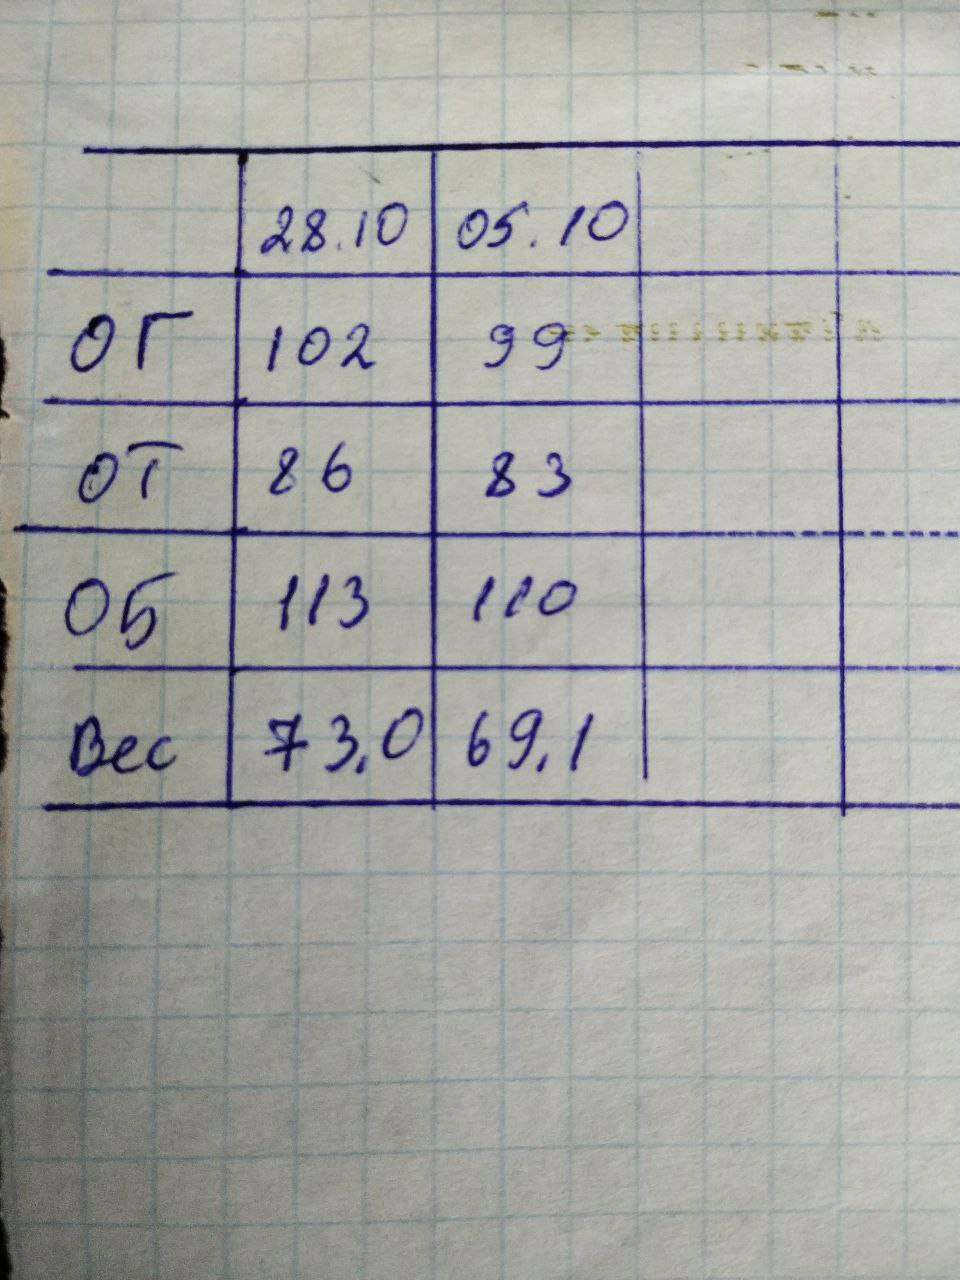 28.10 05.10
ОГ 102 99
ОТ 86 83
ОБ 113 110
Вес 73,0 69,1